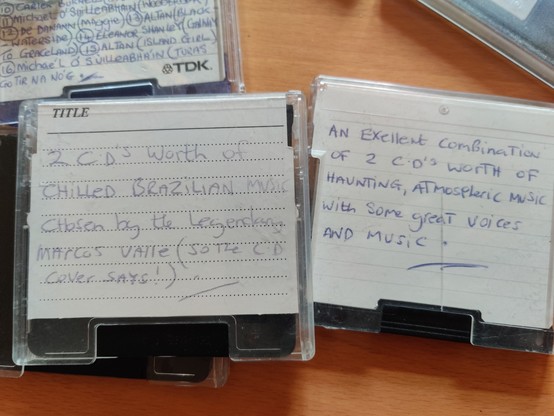 MICHAEL O'SUILLEABHAIN
DE DANANN (MAGGIE) (13) ALTAN (BLACK
WATERSIDE) (14) ELEANOR SHANLEY
TO GRACELAND) (15) ALTAN (ISLAND GIRL
(16) MICHAEL O'SUILLEABHAIN (TURAS
GO TIR NA NÓG.
TDK.
TITLE
2 C.D'S Worth of
CHILLED BRAZILIAN MUSIC
Chosen by the Legendary
MARCOS VALLE (SO THE C'D
COVER SAYS!)
AN EXELLENT COMBINATION
OF 2 C'D'S WORTH OF
HAUNTING, ATMOSPHERIC MUSIC
With Some great Voices
AND MUSIC.